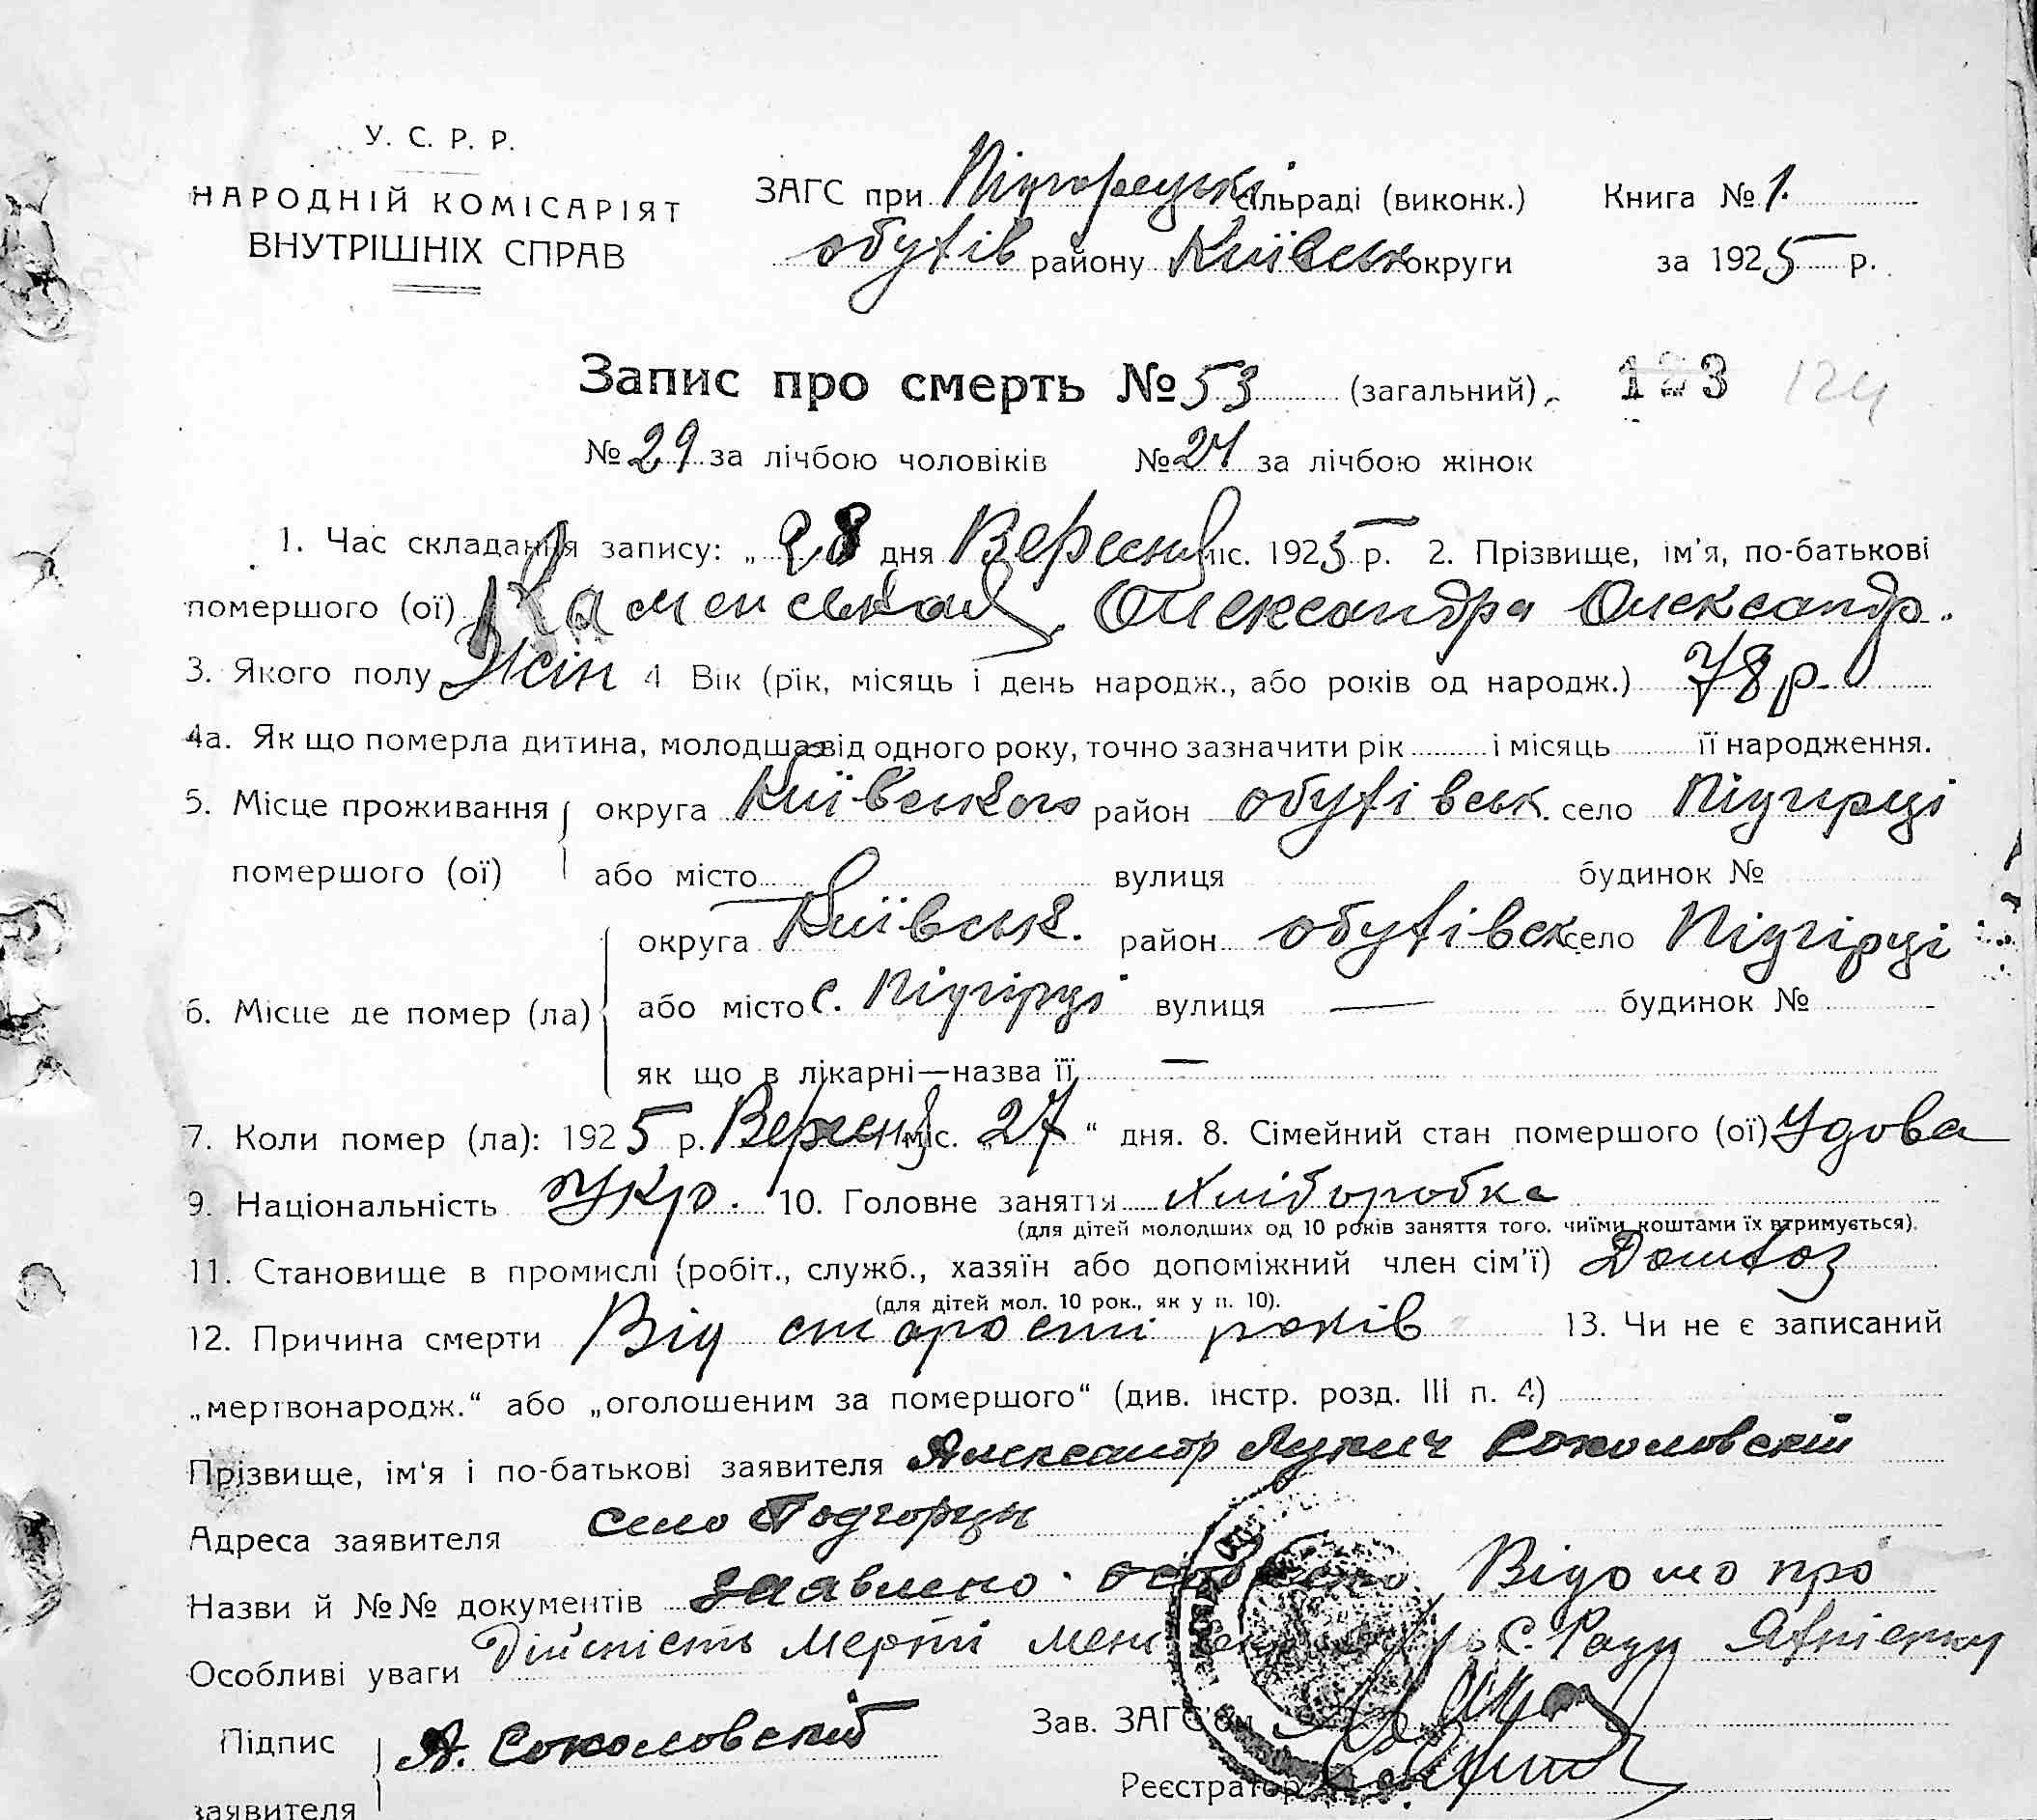 У. С. Р. Р.
НАРОДНІЙ КОМІСАРІЯТ
ВНУТРІШНІХ СПРАВ
ЗАГС при Підгорецькі сільраді (виконк.) Книга № 1.
обухів району Київськ округи за 1925 р.
Запис про смерть № 53 (загальний) 123 124
№ 29 за лічбою чоловіків № 24 за лічбою жінок
1. Час складання запису: „ 28 дня Вересня міс. 1925 р. 2. Прізвище, ім'я, по-батькові
помершого (ої) Каменськая Олександра Олександр.
3. Якого полу Жін 4 Вік (рік, місяць і день народж., або років од народж.) 78 р.
4а. Як що померла дитина, молодша від одного року, точно зазначити рік і місяць її народження.
5. Місце проживання округа Київського район обухівськ. село Підгірці
помершого (ої) або місто вулиця будинок №
округа Київськ. район обухівск село Підгірці
6. Місце де помер (ла) або місто с. Підгірці вулиця — будинок №
як що в лікарні—назва її —
7. Коли помер (ла): 1925 р. Вересня міс. „27“ дня. 8. Сімейний стан помершого (ої) Удова
9. Національність Укр. 10. Головне заняття Хліборобка
(для дітей молодших од 10 років заняття того, чиїми коштами їх втримується).
11. Становище в промислі (робіт., служб., хазяїн або допоміжний член сім'ї)
(для дітей мол. 10 рок., як у п. 10).
12. Причина смерти Від старости років 13. Чи не є записаний
„мертвонародж.“ або „оголошеним за помершого“ (див. інстр. розд. III п. 4)
Прізвище, ім'я і по-батькові заявителя Александр Лукич Соколовскій
Адреса заявителя село Подгорцы
Назви й №№ документів Заявлено Відомо про
Особливі уваги Дійсність мерті С. Раду
Підпис А. Соколовскій Зав. ЗАГС'ом
Реєстратор
заявителя